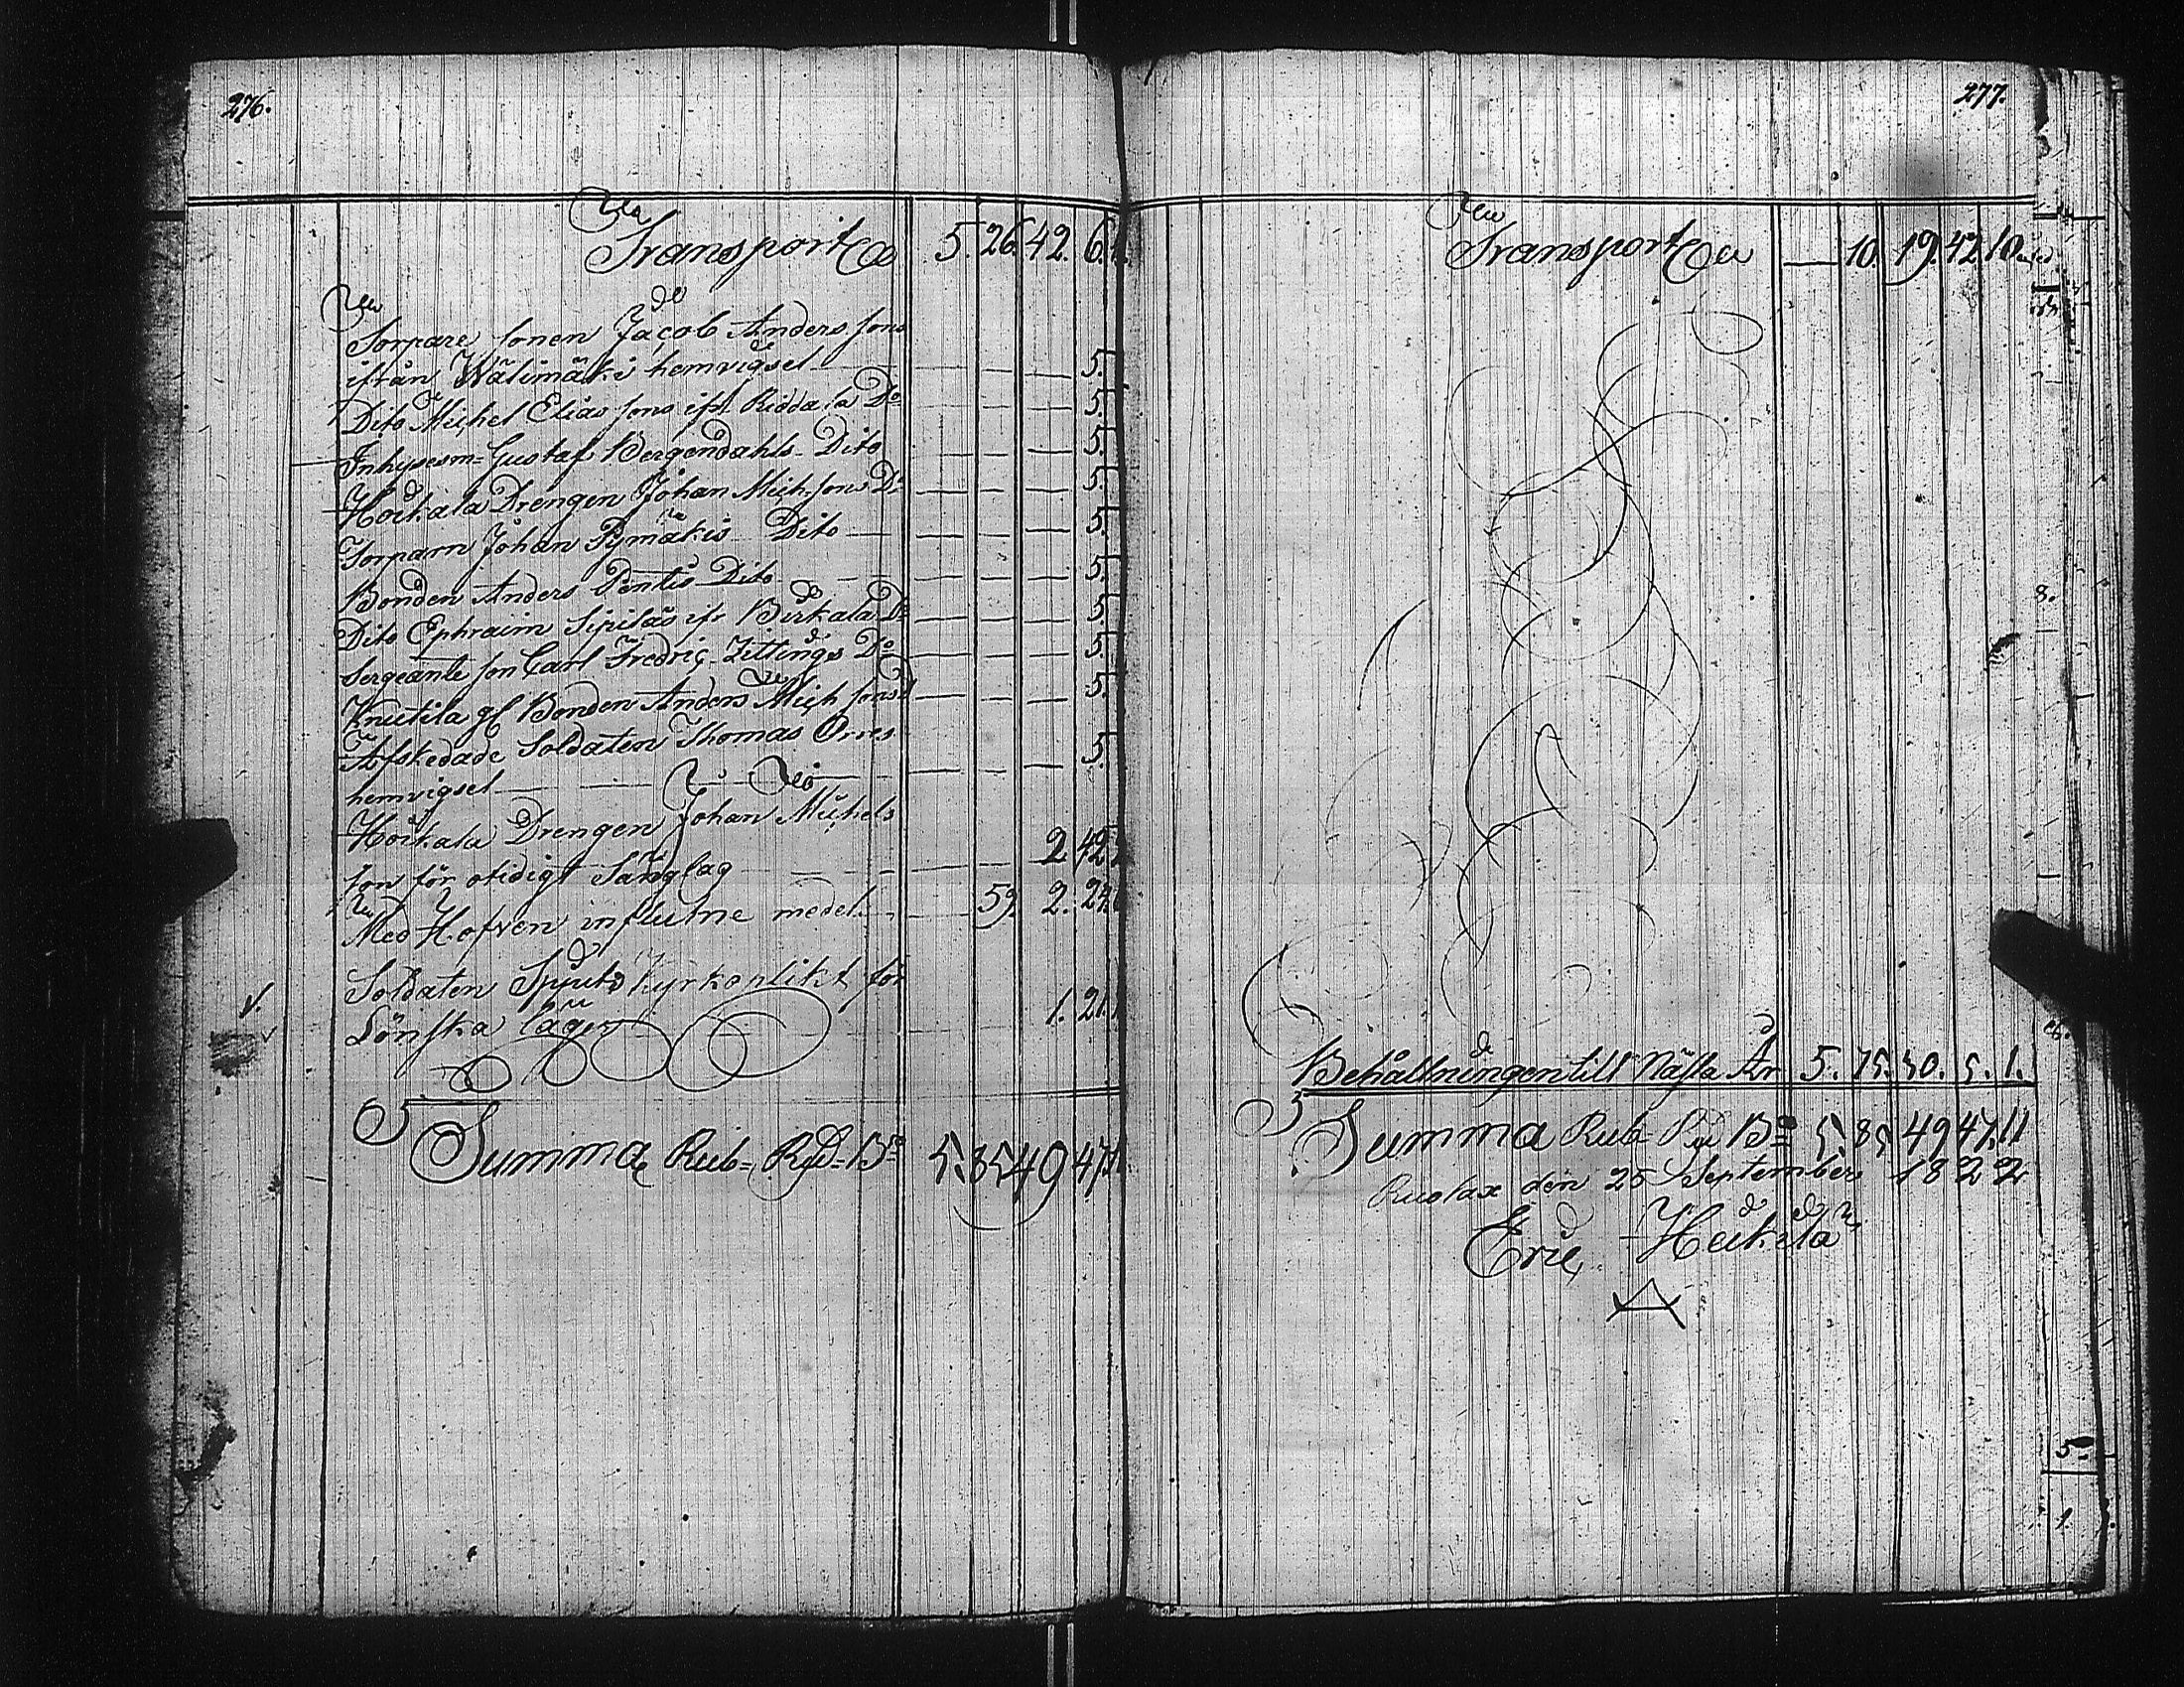 276.
Transport 5. 26. 42. 6.
Torpare sonen Jacob Anders sons
ifrån Wälimäki hemvigsel — — — 5.
Dito Michel Elias sons ifr Riddala Do — — — 5.
Inhysesm= Gustaf Bergendahls Dito — — — 5.
Hoikala Drengen Johan Mich sons Do — — — 5.
Torparn Johan Pymäkis Dito — — — 5.
Bonden Anders Penttis Dito — — — 5.
Dito Ephraim Sipiläs ifr Birkala Do — — — 5.
Sergeante son Carl Fredric Zittings Do — — — 5.
Knutila gl Bonden Anders Mich sons D — — — 5.
Afskedade Soldaten Thomas Orres
hemvigsel — — — 5.
Hoikala Drengen Johan Michels
son för otidigt Sänglag — — 2. 42.
Med Hofven influtne medel — 59. 2. 24.
Soldaten Spjuts kyrkoplikt för
Lönska läger 1. 21.
V.
Summa Rub= Rgd= B:o 5. 85 49 47.
277.
Transport — 10. 19. 42. 10.
Behållningen till Nästa År 5. 75. 30. 5. 1.
Summa Rub= Rgd B:o 5 85 49 47. 11
Ruolax den 25 September 1822
Eric Heikilä